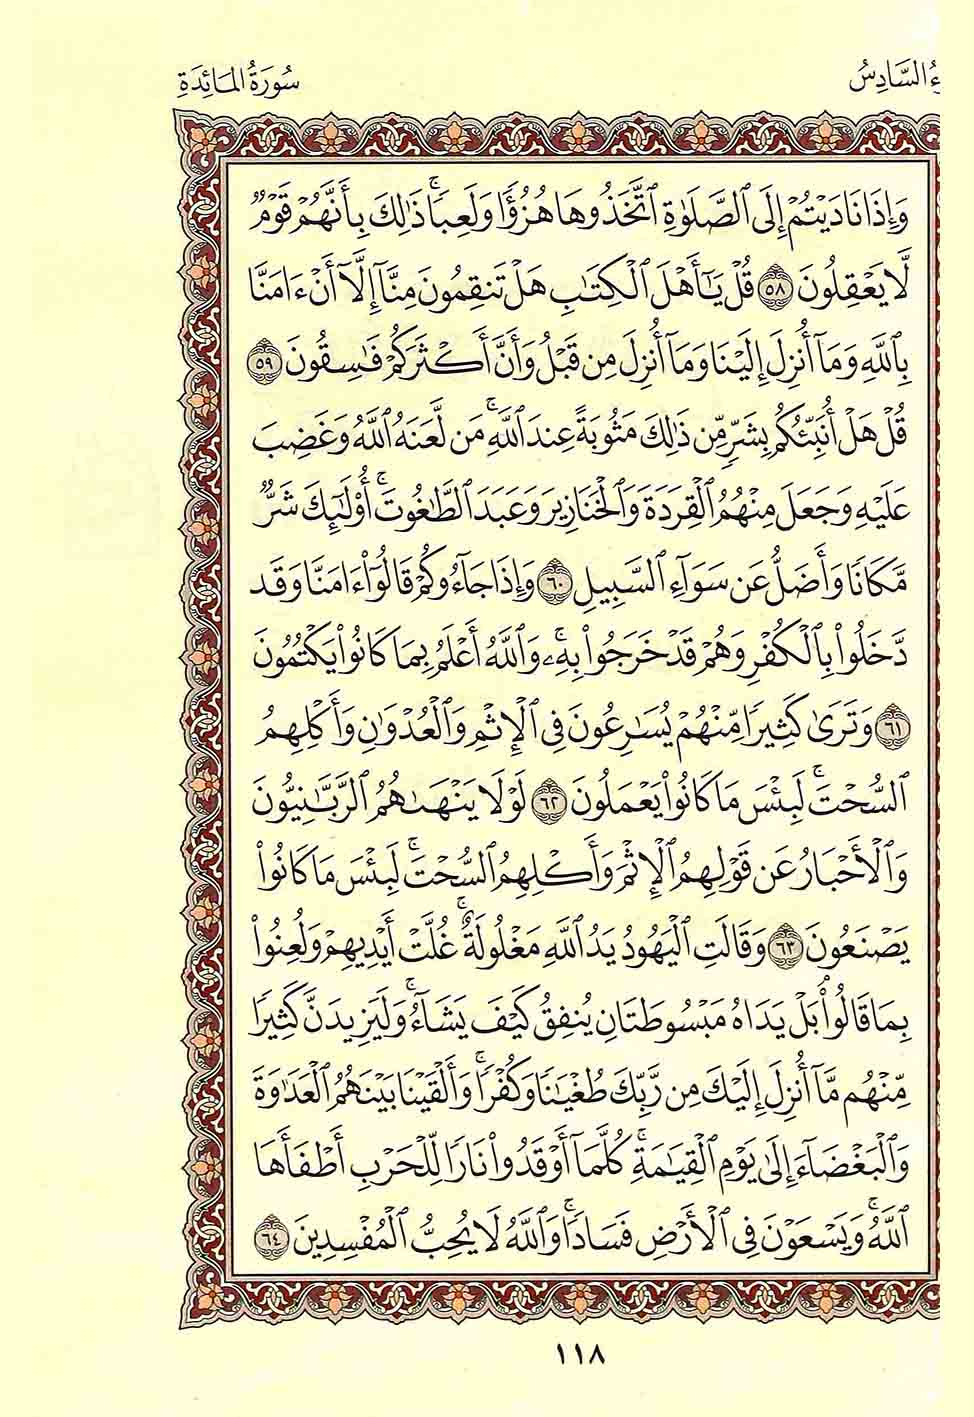 ءُ السَّادِسُ
سُورَةُ المَائِدَةِ
وَإِذَا نَادَيْتُمْ إِلَى ٱلصَّلَوٰةِ ٱتَّخَذُوهَا هُزُوًا وَلَعِبًا ۚ ذَٰلِكَ بِأَنَّهُمْ قَوْمٌ
لَّا يَعْقِلُونَ ٥٨ قُلْ يَٰٓأَهْلَ ٱلْكِتَٰبِ هَلْ تَنقِمُونَ مِنَّآ إِلَّآ أَنْ ءَامَنَّا
بِٱللَّهِ وَمَآ أُنزِلَ إِلَيْنَا وَمَآ أُنزِلَ مِن قَبْلُ وَأَنَّ أَكْثَرَكُمْ فَٰسِقُونَ ٥٩
قُلْ هَلْ أُنَبِّئُكُم بِشَرٍّ مِّن ذَٰلِكَ مَثُوبَةً عِندَ ٱللَّهِ ۚ مَن لَّعَنَهُ ٱللَّهُ وَغَضِبَ
عَلَيْهِ وَجَعَلَ مِنْهُمُ ٱلْقِرَدَةَ وَٱلْخَنَازِيرَ وَعَبَدَ ٱلطَّٰغُوتَ ۚ أُو۟لَٰٓئِكَ شَرٌّ
مَّكَانًا وَأَضَلُّ عَن سَوَآءِ ٱلسَّبِيلِ ٦٠ وَإِذَا جَآءُوكُمْ قَالُوٓا۟ ءَامَنَّا وَقَد
دَّخَلُوا۟ بِٱلْكُفْرِ وَهُمْ قَدْ خَرَجُوا۟ بِهِۦ ۚ وَٱللَّهُ أَعْلَمُ بِمَا كَانُوا۟ يَكْتُمُونَ
٦١ وَتَرَىٰ كَثِيرًا مِّنْهُمْ يُسَٰرِعُونَ فِى ٱلْإِثْمِ وَٱلْعُدْوَٰنِ وَأَكْلِهِمُ
ٱلسُّحْتَ ۚ لَبِئْسَ مَا كَانُوا۟ يَعْمَلُونَ ٦٢ لَوْلَا يَنْهَىٰهُمُ ٱلرَّبَّٰنِيُّونَ
وَٱلْأَحْبَارُ عَن قَوْلِهِمُ ٱلْإِثْمَ وَأَكْلِهِمُ ٱلسُّحْتَ ۚ لَبِئْسَ مَا كَانُوا۟
يَصْنَعُونَ ٦٣ وَقَالَتِ ٱلْيَهُودُ يَدُ ٱللَّهِ مَغْلُولَةٌ ۚ غُلَّتْ أَيْدِيهِمْ وَلُعِنُوا۟
بِمَا قَالُوا۟ ۘ بَلْ يَدَاهُ مَبْسُوطَتَانِ يُنفِقُ كَيْفَ يَشَآءُ ۚ وَلَيَزِيدَنَّ كَثِيرًا
مِّنْهُم مَّآ أُنزِلَ إِلَيْكَ مِن رَّبِّكَ طُغْيَٰنًا وَكُفْرًا ۚ وَأَلْقَيْنَا بَيْنَهُمُ ٱلْعَدَٰوَةَ
وَٱلْبَغْضَآءَ إِلَىٰ يَوْمِ ٱلْقِيَٰمَةِ ۚ كُلَّمَآ أَوْقَدُوا۟ نَارًا لِّلْحَرْبِ أَطْفَأَهَا
ٱللَّهُ ۚ وَيَسْعَوْنَ فِى ٱلْأَرْضِ فَسَادًا ۚ وَٱللَّهُ لَا يُحِبُّ ٱلْمُفْسِدِينَ ٦٤
١١٨